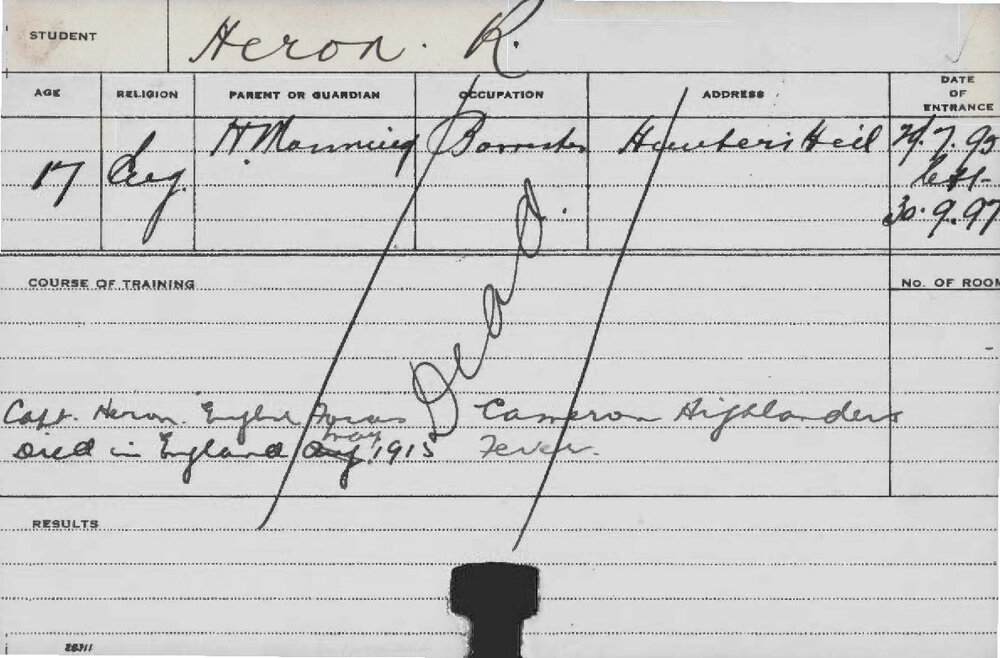 STUDENT Heron. R.
AGE RELIGION PARENT OR GUARDIAN OCCUPATION ADDRESS DATE OF ENTRANCE
17 Eng. H. Manning Barrister Hunters Hill 29.7.95
left
30.9.97
Dead.
COURSE OF TRAINING No. OF ROOM
Capt. Heron. English Forces Cameron Highlanders
may
Died in England Aug. 1915 Fever.
RESULTS
28311